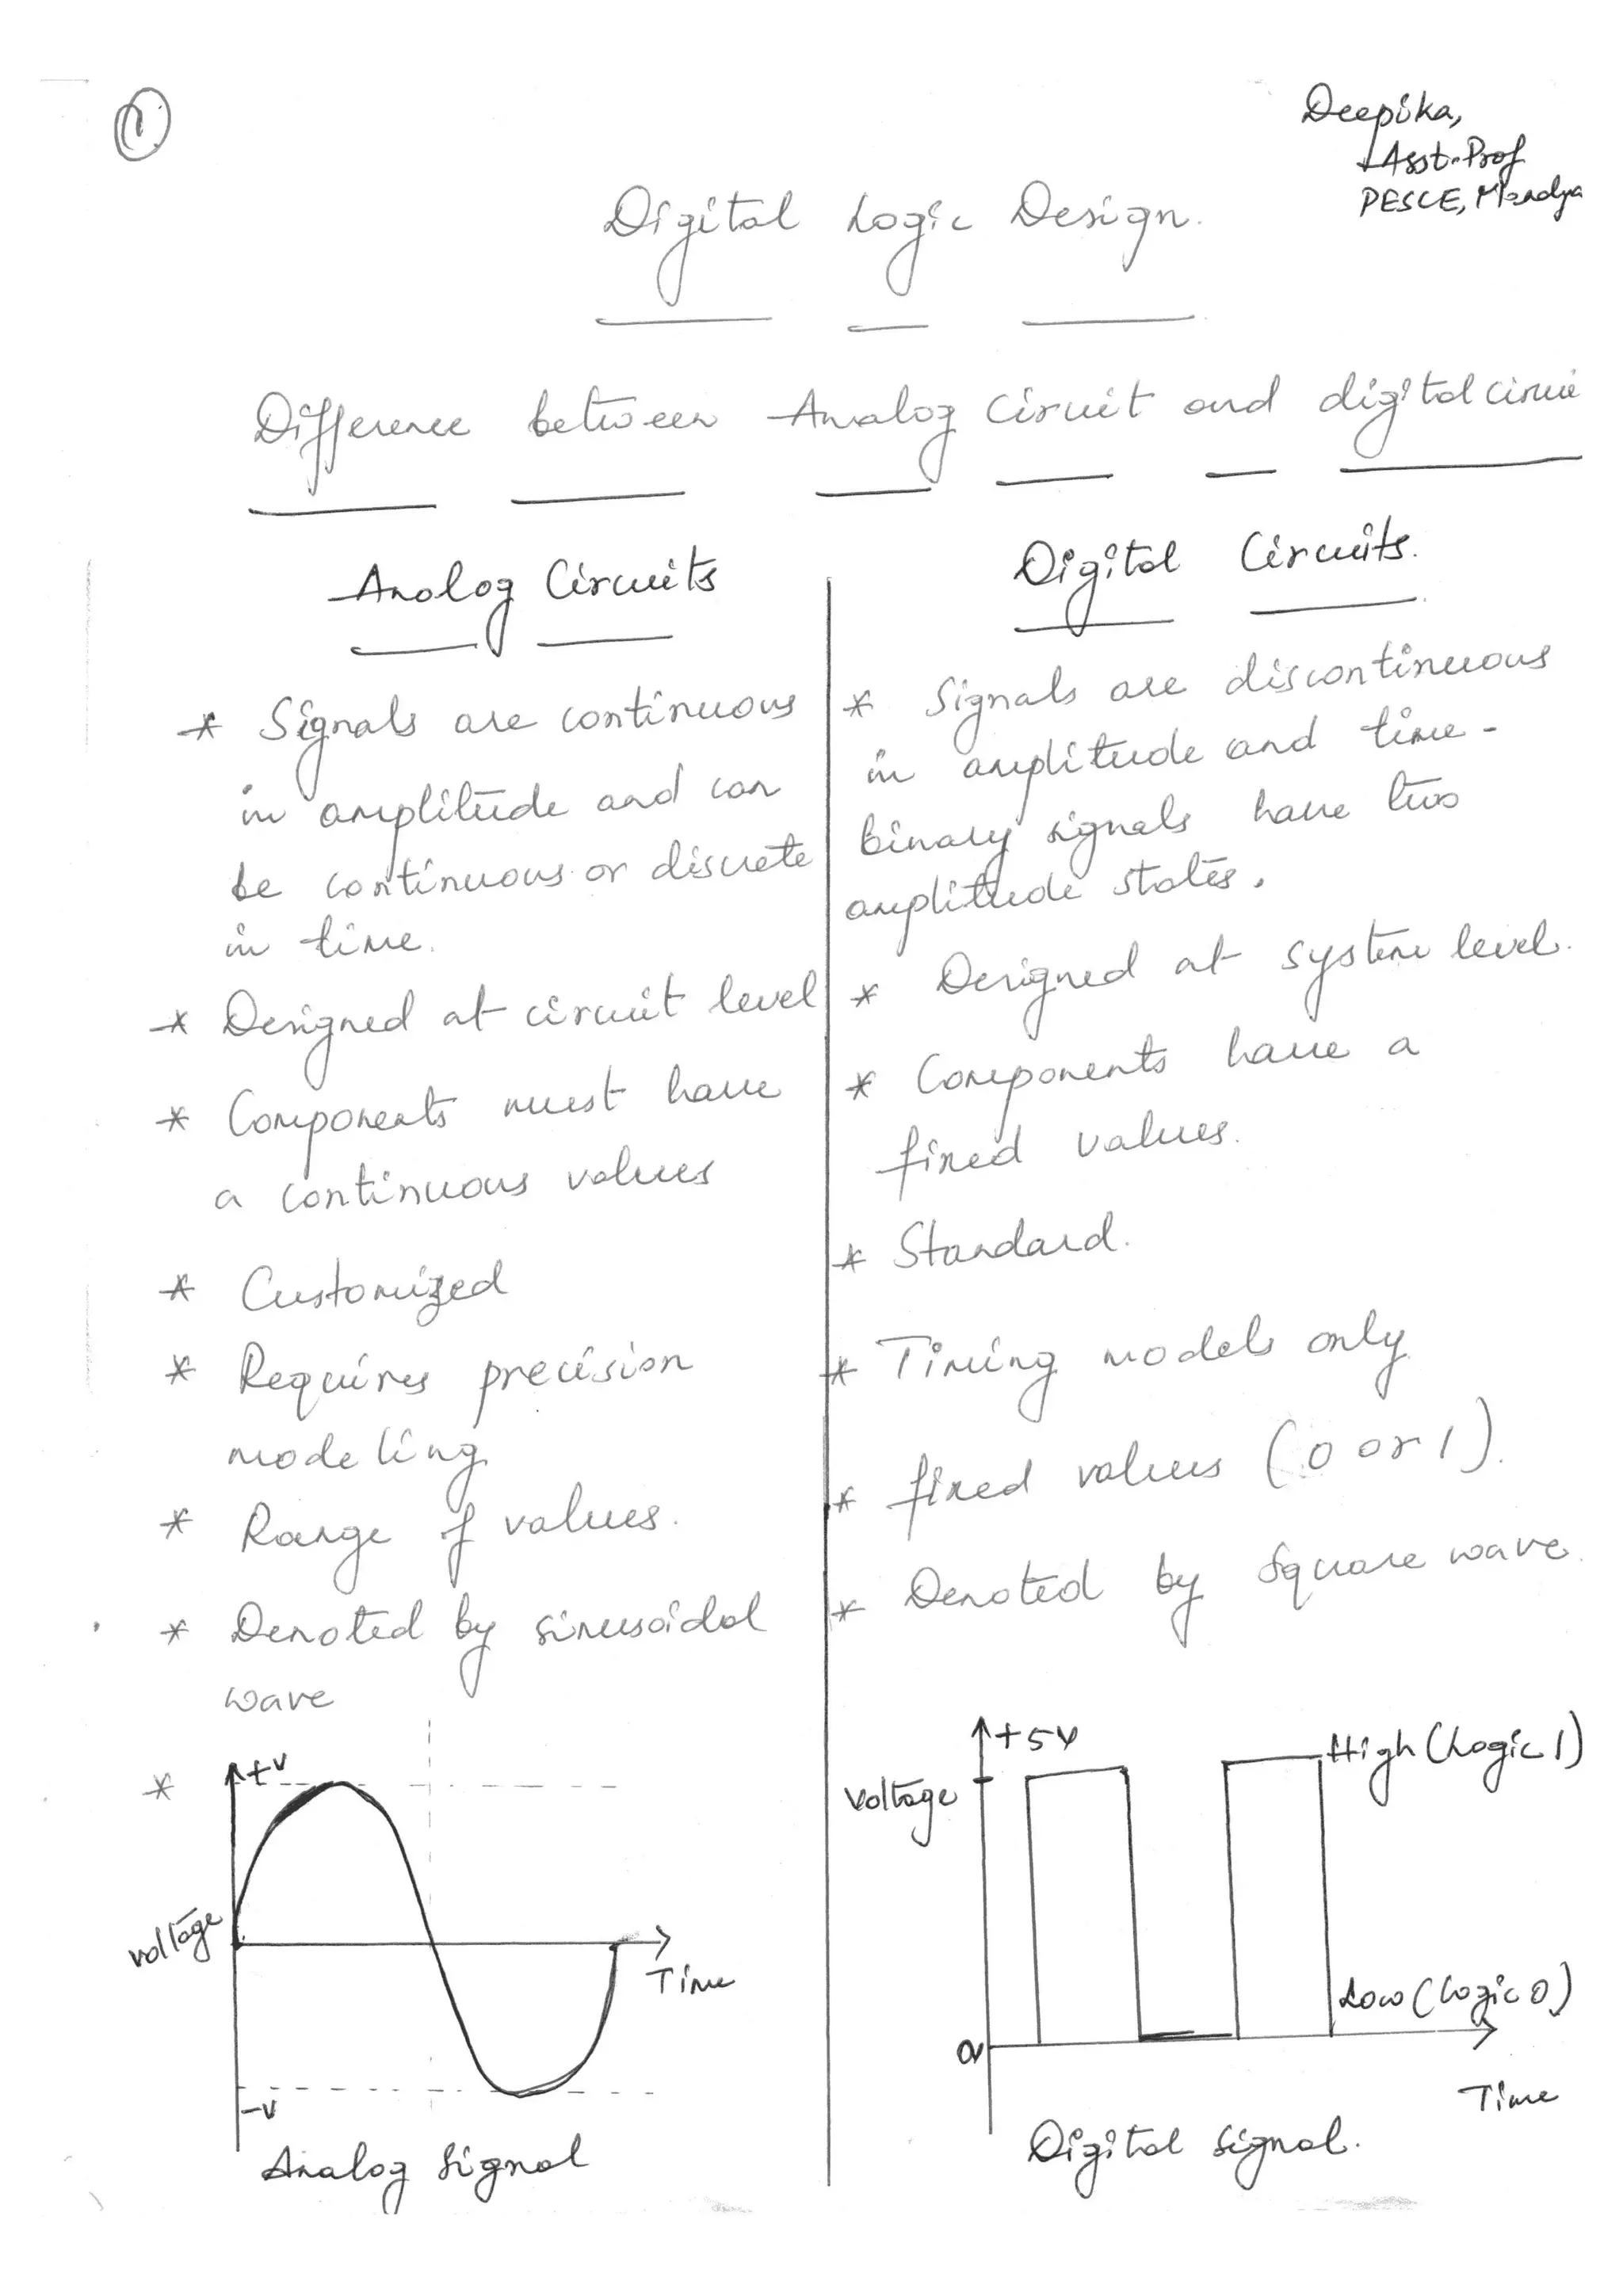 1
Deepika,
Asst. Prof
PESCE, Mandya
Digital Logic Design.
Difference between Analog Circuit and digital circui
Analog Circuits
* Signals are continuous
in amplitude and can
be continuous or discrete
in time.
* Designed at circuit level
* Components must have
a continuous values
* Customized
* Requires precision
modeling
* Range of values.
* Denoted by sinusoidal
wave
*
+V
voltage
Time
-V
Analog signal
Digital Circuits.
* Signals are discontinuous
in amplitude and time -
binary signals have two
amplitude states.
* Designed at system level.
* Components have a
fixed values.
* Standard.
* Timing models only
* fixed values (0 or 1).
* Denoted by square wave.
+5V
High (Logic 1)
voltage
Low (Logic 0)
0V
Time
Digital signal.